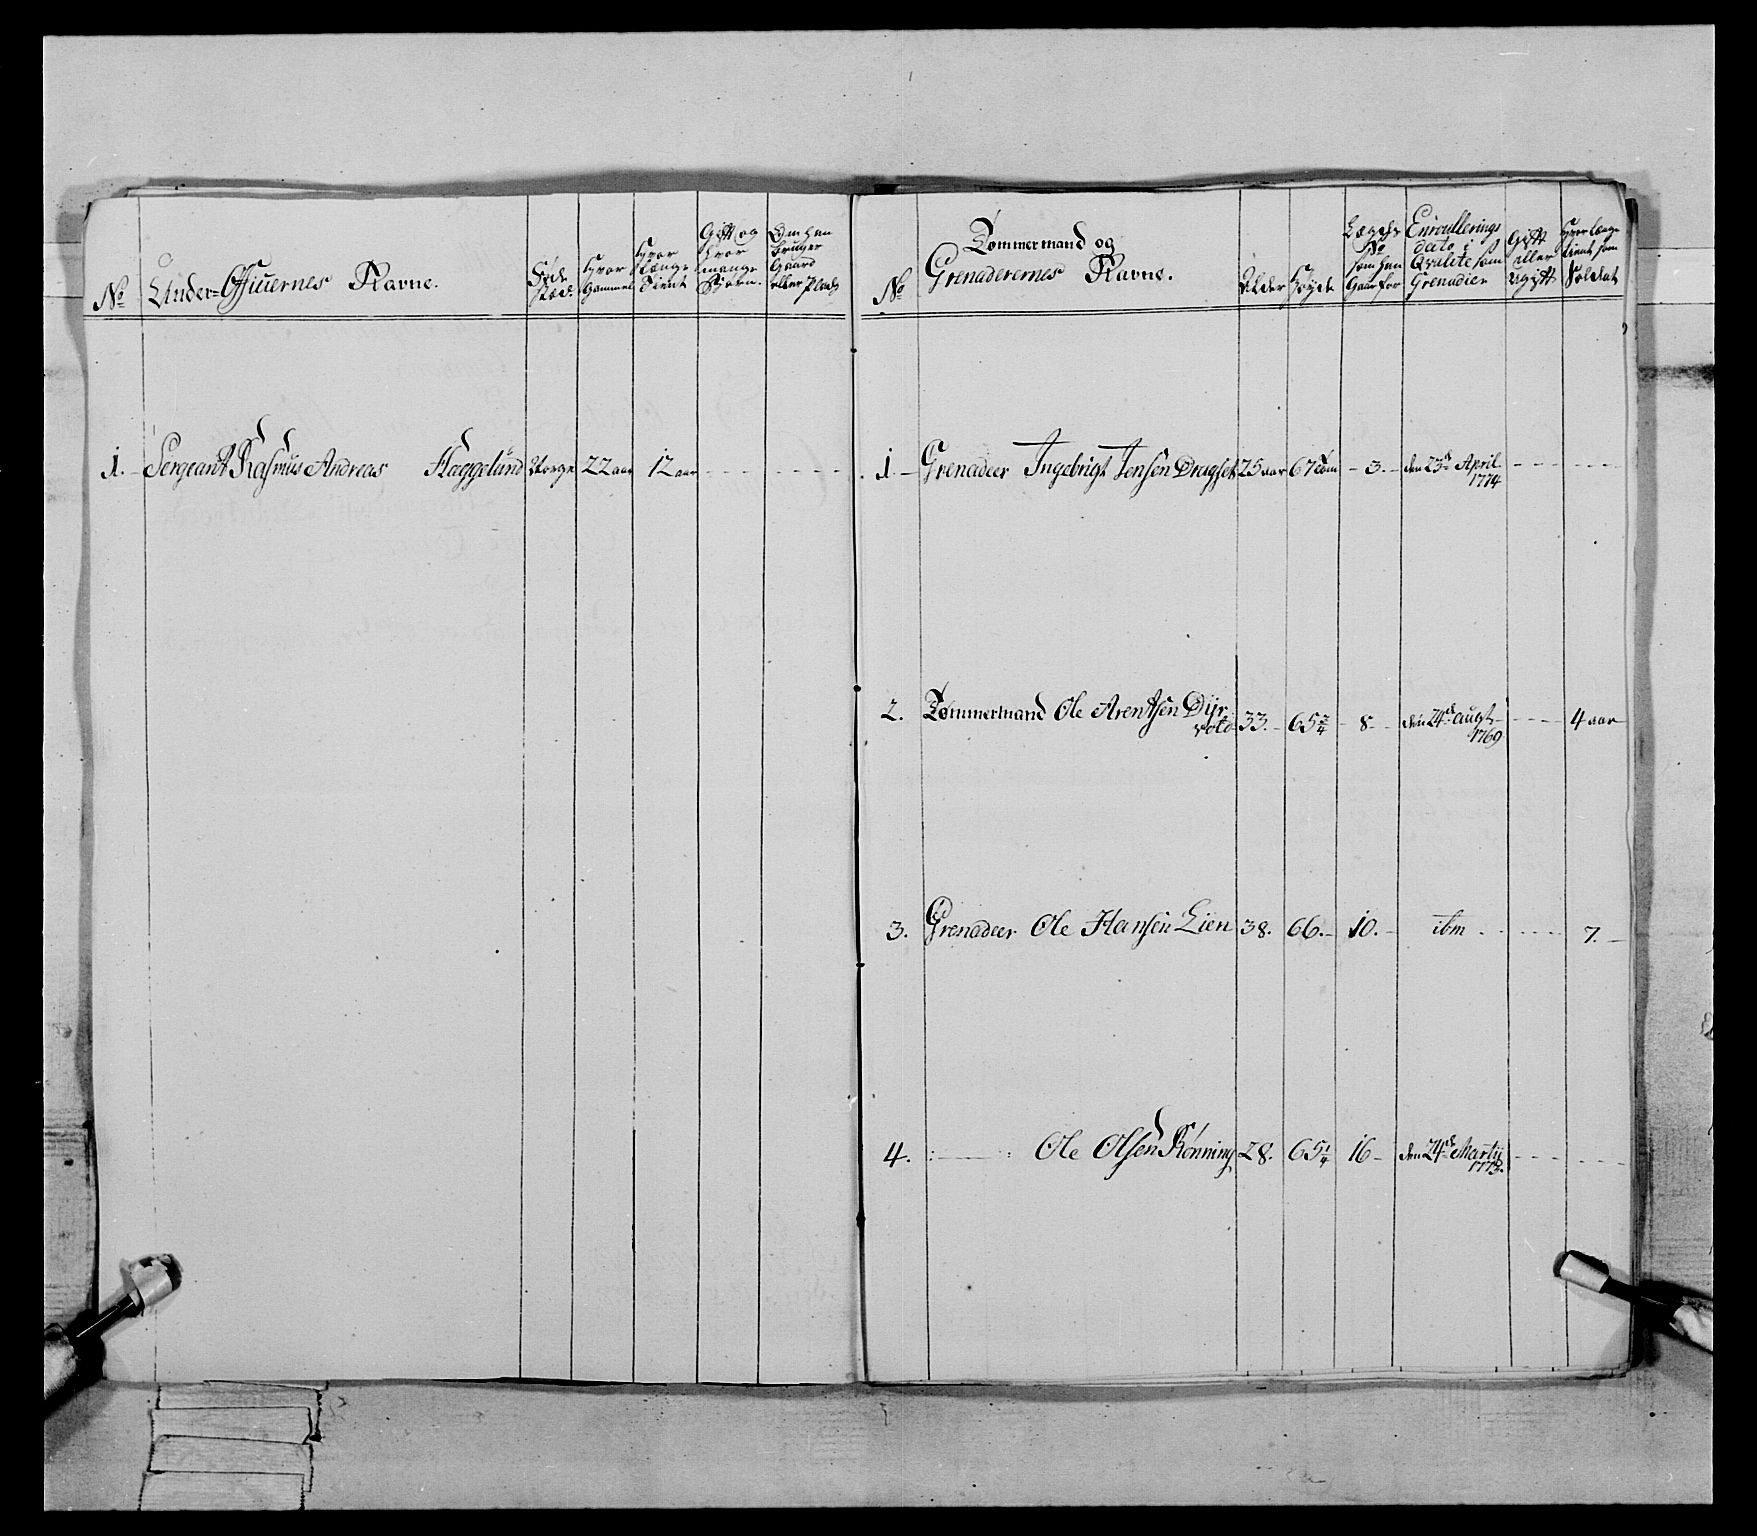 No
Under-Officiernes Navne.
Føde
stæd.
hvor
Gammel
hvor
længe
Tient
Gift og
hvor
mange
Børn.
Om han
bruger
Gaard
eller Plads
1. Sergeant Rasmus Andreas Haggelund Norge 22 aar 12 aar
No
Tømmermand og
Grenaderernes Navne.
Alder
Høyde
Lægds
No
som han
Gaar for
Enroullerings
dato i
Qvalite som
Grenadier
Gift
eller
Ugift
hvor længe
tient som
Soldat
1 Grenadeer Ingebrigt Jensen Dragset 25 aar 67 Tom 3. den 23de April
1774
2. Tømmermand Ole Arentsen Dyr 33. 65 3/4 8 den 24de augt 4 aar
vold 1769
3. Grenadeer Ole Hansen Lien 38. 66. 10. ibm 7.
4. Ole Olsen Rønning 28. 65 1/4 16 den 24de Martij
1773.